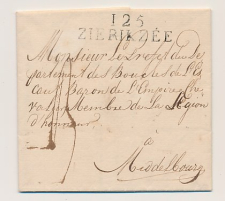 125
ZIERIKZÉE
Monsieur Le Préfet du Dé
partement des Bouches de l'Es
caut Baron de L'Empire &
Membre de La Légion
d'honneur
à
Middelbourg